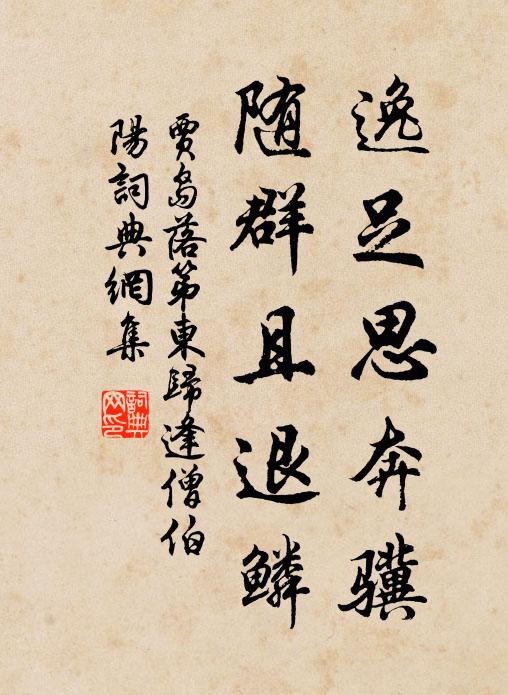 逸足思奔骥
随群且退鳞
賈島落第東歸逢僧伯
陽詞典網集
詞典
网印